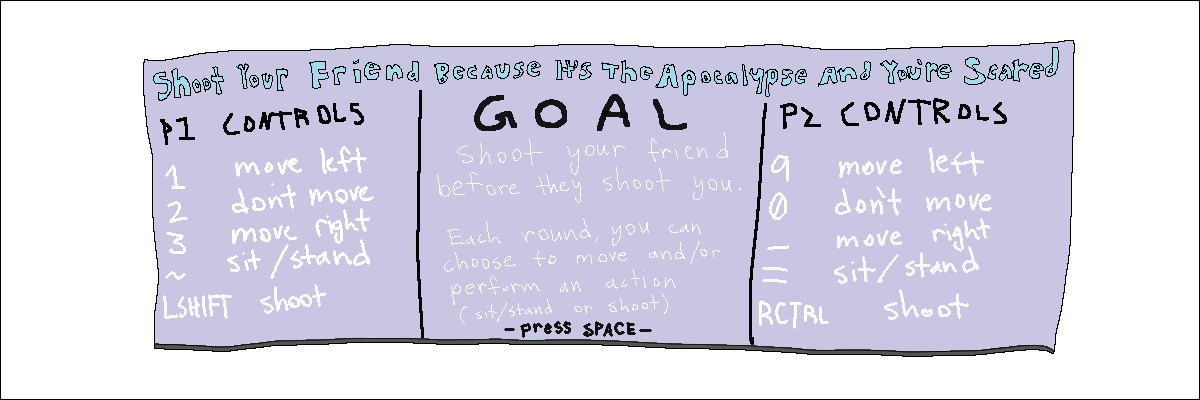 Shoot Your Friend Because It's The Apocalypse And You're Scared
P1 CONTROLS
1 move left
2 don't move
3 move right
~ sit/stand
LSHIFT shoot
GOAL
Shoot your friend
before they shoot you.
Each round, you can
choose to move and/or
perform an action
(sit/stand or shoot)
-press SPACE-
P2 CONTROLS
9 move left
0 don't move
- move right
= sit/stand
RCTRL shoot